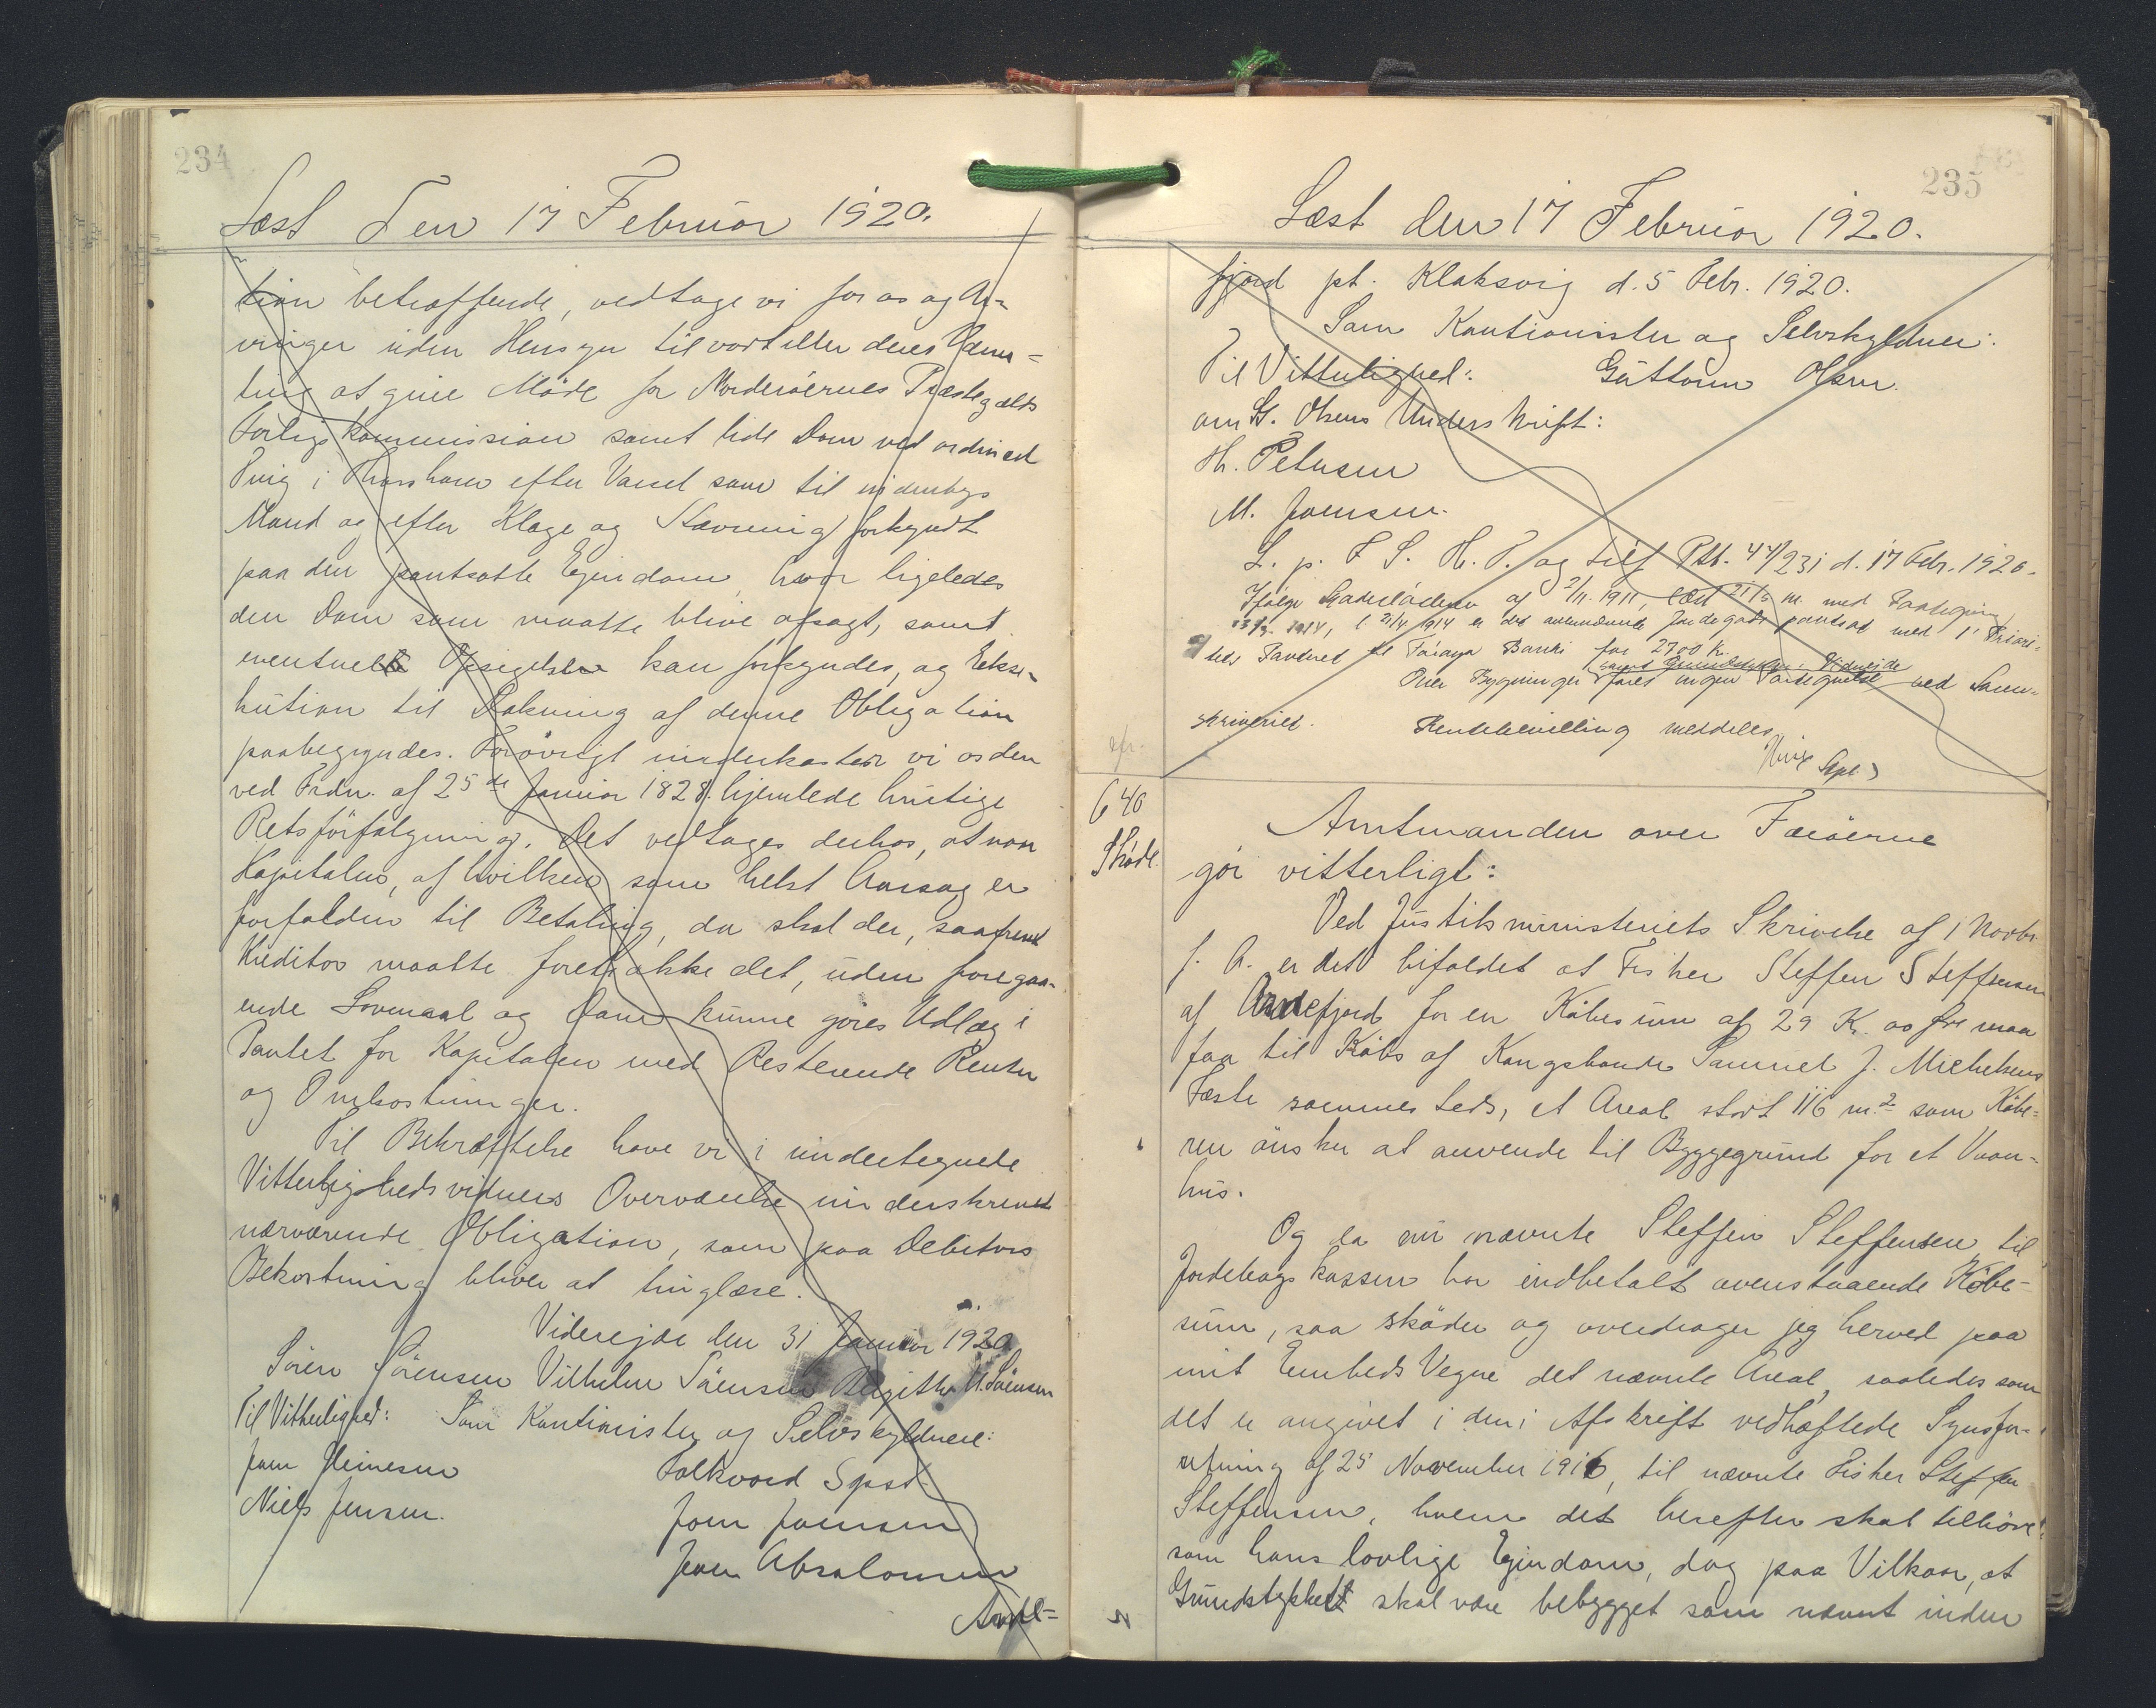 234
Læst Den 17 Februar 1920.
tion betræffende, vedtage vi for os og Ar-
vinger uden Hensyn til vort eller deres Hjem-
ting at give Møde for Norderøernes Præstegælds
Forligskommission samt lide Dom ved ordinært
Ting i Thorshavn efter Varsel som til indenbys
Mand og efter Klage og Stævning forkyndt
paa den pantsatte Ejendom, hvor ligeledes
den Dom som maatte blive afsagt, samt
eventuelt Opsigelse kan forkyndes, og Ekse-
kution til Dækning af denne Obligation
paabegyndes. Forøvrigt underkaster vi os den
ved Frdn. af 25de Januar 1828 hjemlede hurtige
Retsforfølgning. Det vedtages derhos, at naar
Kapitalen, af hvilken som helst Aarsag er
forfalden til Betaling, da skal der, saafremt
Kreditor maatte foretrække det, uden foregaa-
ende Lovmaal og Dom kunne gøres Udlæg i
Pantet for Kapitalen med Resterende Renter
og Omkostninger.
Til Bekræftelse have vi i undertegnede
Vitterlighedsvidners Overværelse underskrevet
nærværende Obligation, som paa Debitors
Bekostning bliver at tinglæse.
Viderejde den 31 Januar 1920
Sören Sörensen Vilhelm Sörensen Birgitte M. Sörensen
Til Vitterlighed: Som Kautionister og Selvskyldnere:
Joen Heinesen Folkvard Sgsd.
Niels Jensen. Joen Joensen
Joen Absalonsen
Arnde-
235
Læst den 17 Februar 1920.
fjord pt. Klaksvig d. 5 Febr. 1920.
Som Kautionister og Selvskyldner:
Til Vitterlighed: Guttorm Olsen.
om G. Olsens Underskrift:
H. Petersen
M. Joensen.
L. p. F. S. H. T. og tilf Ptb. 44/231 d. 17 Febr. 1920.
Ifølge Skadesløsbrev af 2/11. 1911, læst 21/5 m. med Paategning
1914, l 21/4 1914 er det ovennævnte Jordegods pantsat med 1' Priori-
tets Panteret til Føroya Banki for 2700 K.
samt Grundstykker i Viderejde
Over Bygninger føres ingen Fortegnelse ved Soren-
skriveriet. Rentebevilling meddeles.
640
Skøde.
Amtmanden over Færøerne
gör vitterligt:
Ved Justitsministeriets Skrivelse af 1 Novbr.
f. A. er det bifaldet at Fisker Steffen Steffensen
af Arnefjord for en Købesum af 29 Kr. 00 Øre maa
faa til Købs af Kongsbonde Samuel J. Michelsens
Fæste sammesteds, et Areal stort 116 m.2 som Købe-
ren önsker at anvende til Byggegrund for et Vaan-
hus.
Og da nu nævnte Steffen Steffensen til
Jordebogskassen har indbetalt ovenstaaende Købe-
sum, saa skøder og overdrager jeg herved paa
mit Embeds Vegne det nævnte Areal, saaledes som
det er angivet i den i Afskrift vedhæftede Synsfor-
retning af 25 November 1916, til nævnte Fisker Steffen
Steffensen, hvem det herefter skal tilhøre
som hans lovlige Ejendom, dog paa Vilkaar, at
Grundstykket skal være bebygget som nævnt inden